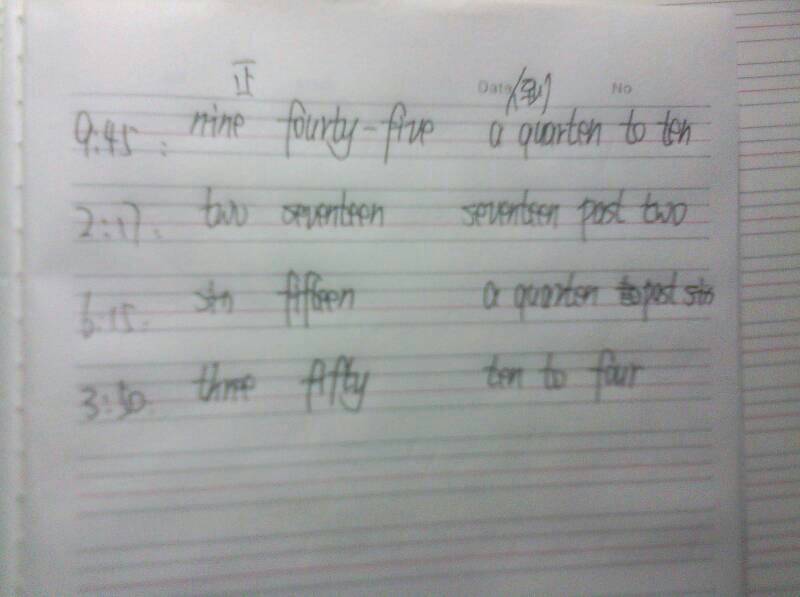 正 Date (到) No
9:45: nine fourty-five a quarten to ten
2:17: two seventeen seventeen past two
6:15: fifteen a quarten past
3:50: three fifty ten to four